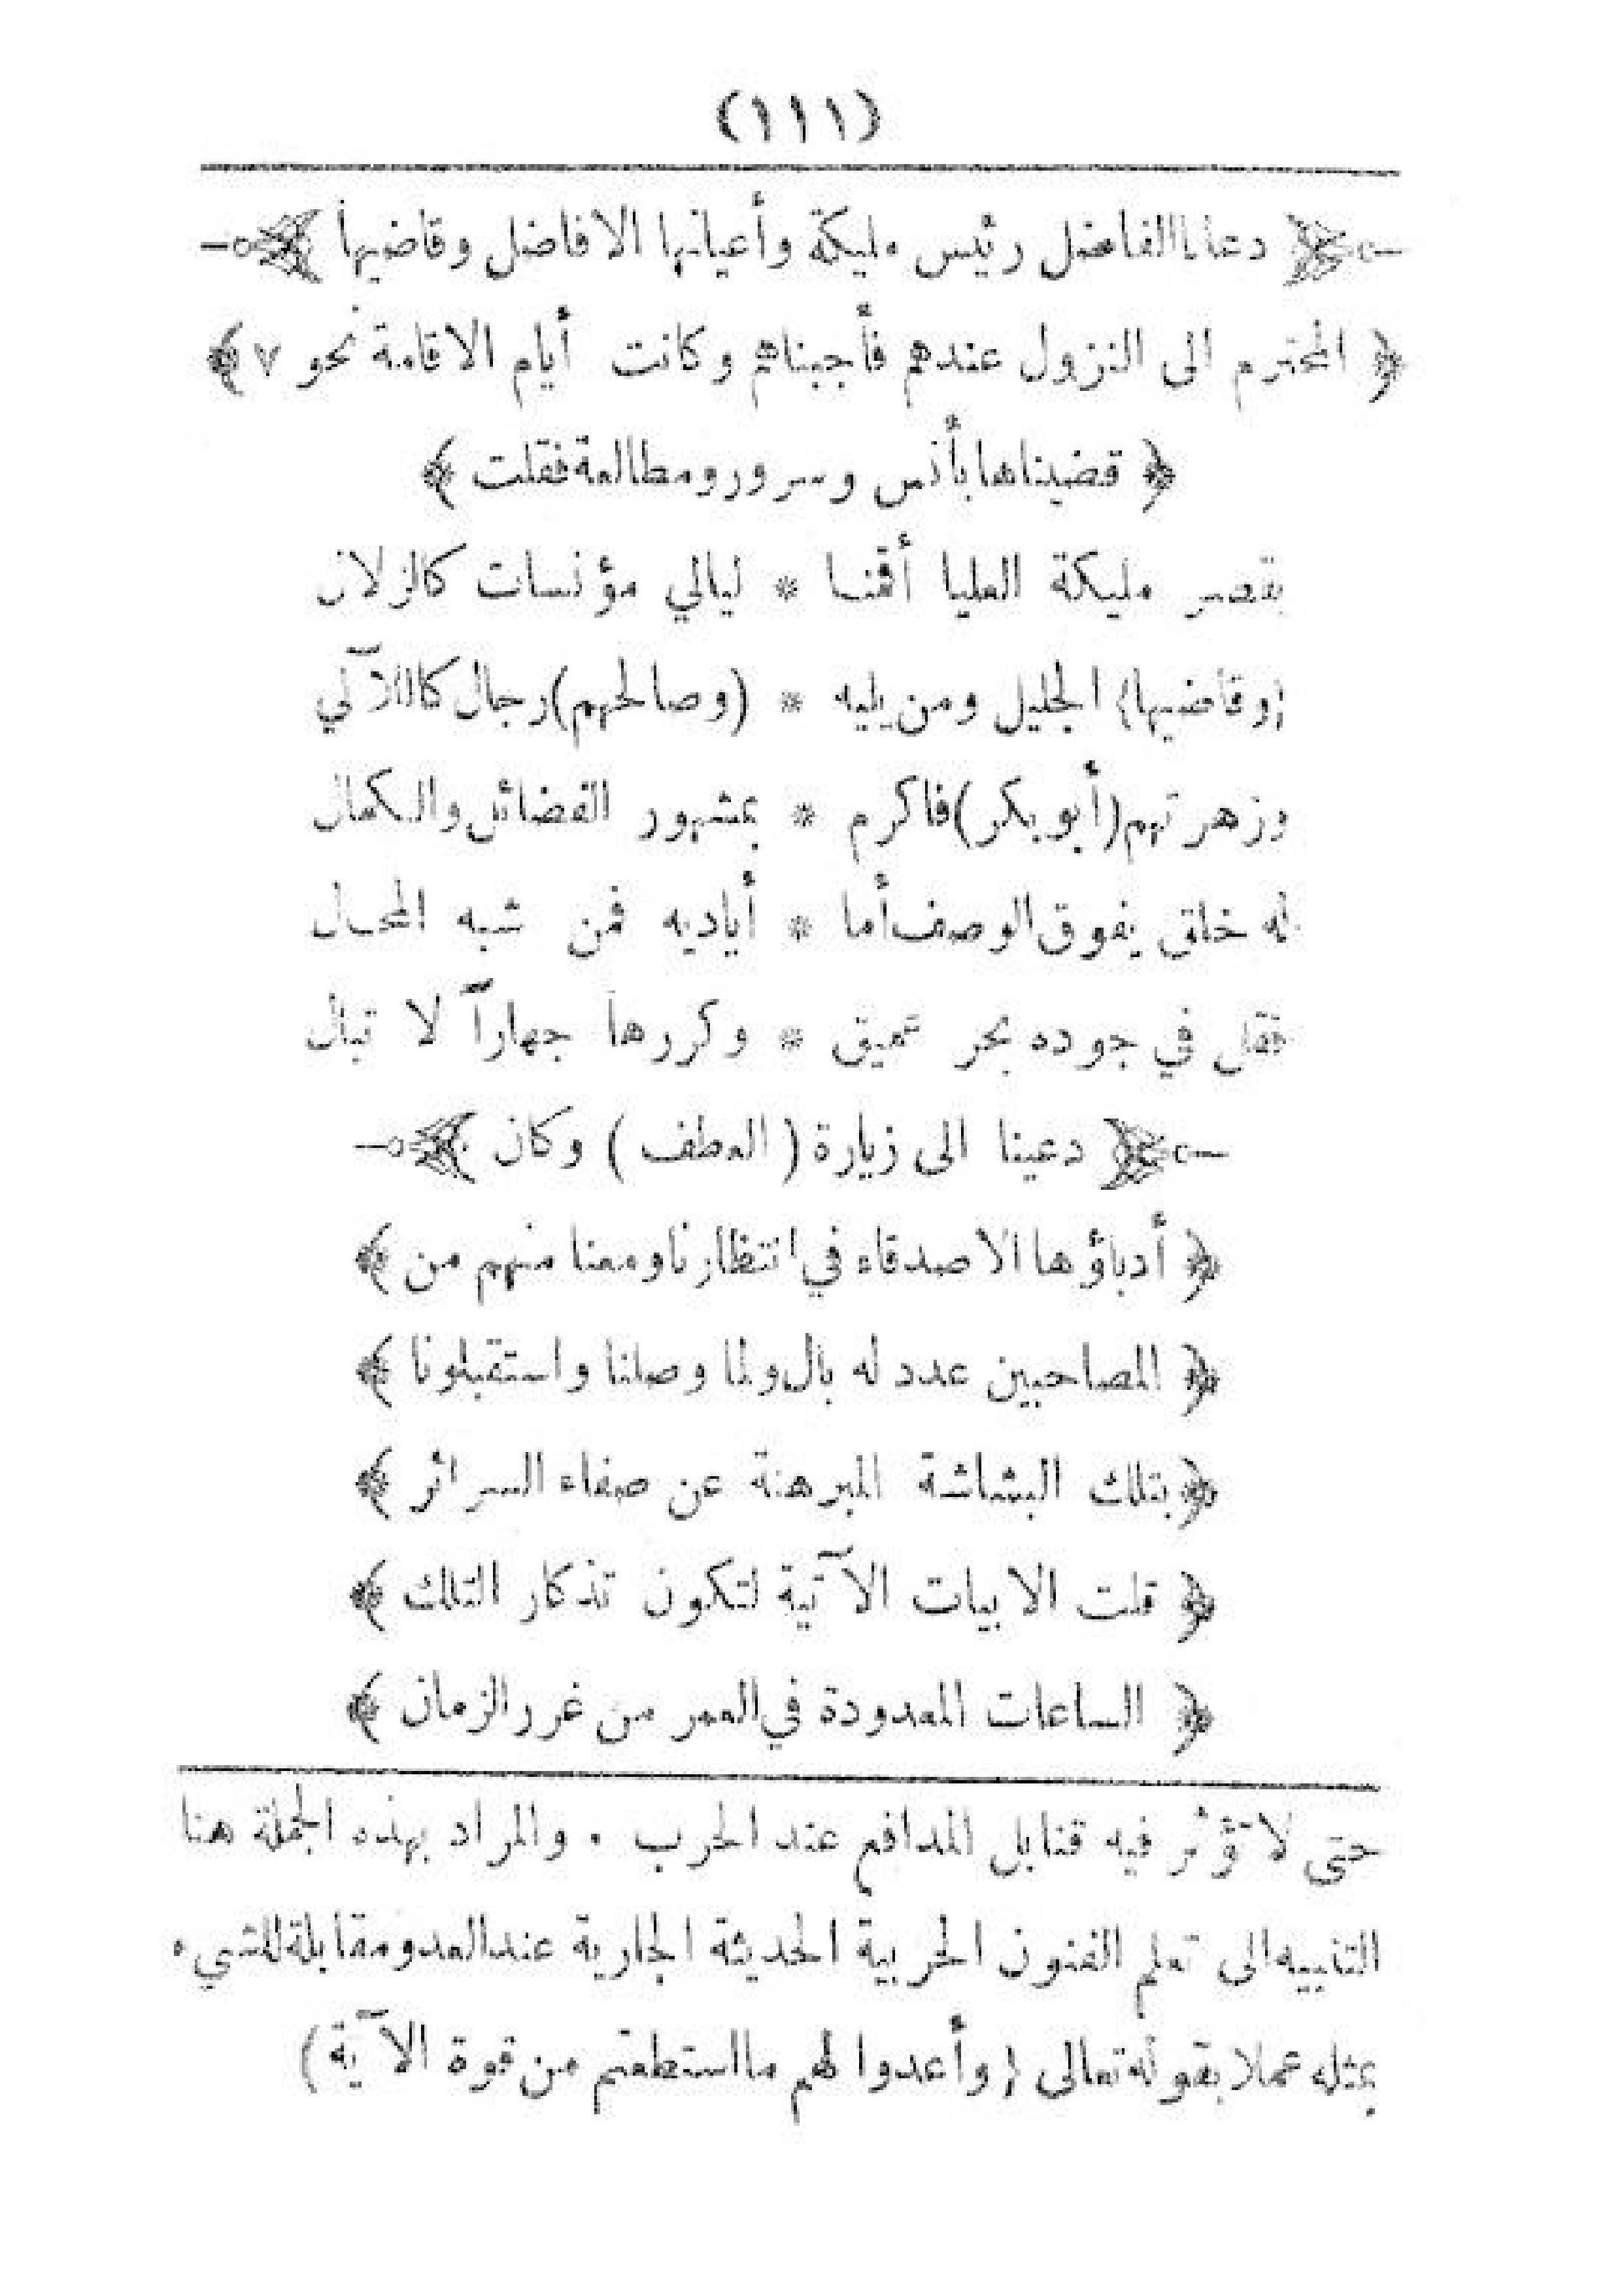 (١١١)
دعانا الفاضل رئيس مليكة وأعيانها الافاضل وقاضيها
﴿ المحترم الى النزول عندهم فأجبناهم وكانت أيام الاقامة نحو ٧ ﴾
﴿ قضيناها بأنس وسرور ومطالعة فقلت ﴾
بقصر مليكة العليا أقمنا * ليالي مؤنسات كالزلال
(وقاضيها) الجليل ومن يليه * (وصالحهم) رجال كاللآلي
وزهرتهم (أبو بكر) فاكرم * بمشهور الفضائل والكمال
له خلق يفوق الوصف أما * أياديه فمن شبه المحال
فقل في جوده بحر عميق * وكررها جهاراً لا تبال
دعينا الى زيارة ( العطف ) وكان
﴿ أدباؤها الاصدقاء في انتظارنا ومعنا منهم من ﴾
﴿ المصاحبين عدد له بال ولما وصلنا واستقبلونا ﴾
﴿ بتلك البشاشة المبرهنة عن صفاء السرائر ﴾
﴿ قلت الابيات الآتية لتكون تذكار التلك ﴾
﴿ الساعات المعدودة في العمر من غرر الزمان ﴾
حتى لا تؤثر فيه قنابل المدافع عند الحرب . والمراد بهذه الجملة هنا
التنبيه الى تعلم الفنون الحربية الحديثة الجارية عند العدو مقابلة للشيء
بمثله عملا بقوله تعالى ( وأعدوا لهم ما استطعتم من قوة الآية )